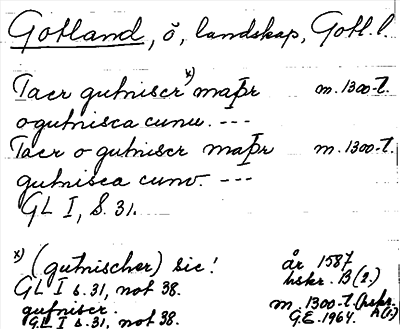 Gotland, ö, landskap, Gotl. l.
Taer gutniscr x) maþr m. 1300-t.
ogutnisca cunu. ---
Taer o gutniscr maþr m. 1300-t.
gutnisca cuno. ---
GL I, S. 31.
x) (gutnischer) sic! år 1587
GL I s. 31, not 38. hskr. B (2.)
gutniscr. m. 1300-t. (hskr. A (1.)
GL I s. 31, not 38. G.E. 1964.